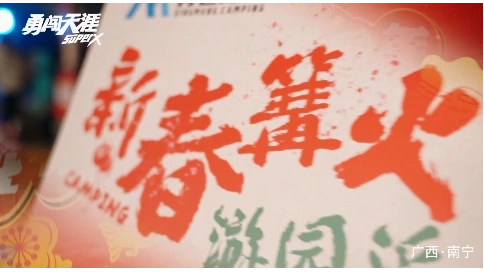 勇闯天涯
superX
CAMPING
新春篝火
CAMPING
游园
广西·南宁